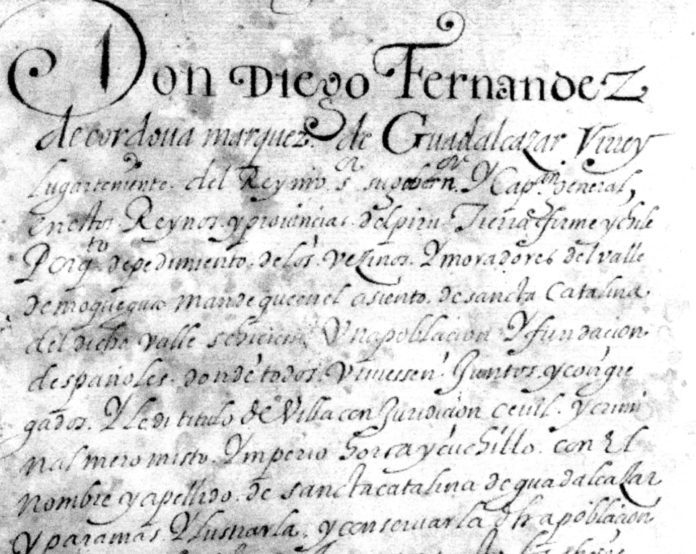 Don Diego Fernandez
de cordova marquez. de Guadalcazar Virrey
lugarteniente. del Rey nro sor su gobernor. Y Capan General,
en estos Reynos. y provincias. del piru. Tierra firme y chile
Por qto. de pedimiento. de los. vezinos. Y moradores del valle
de moquegua mande que en el asiento. de sancta Catalina
del dicho valle se hiciese. Vna poblacion Y fundacion
de españoles. donde todos. viviessen. Juntos. y congre
gados. Y le di titulo de Villa con Juridicion cevil. y crimi
nal mero misto. Ymperio horca y cuchillo. con El
nombre y apellido. de sancta catalina de guadalcazar
Y para mas Ylustrarla. y conservarla dha poblacion